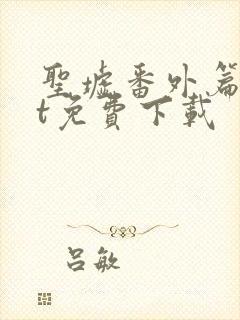 聖墟番外篇
t免費下載
吕敏